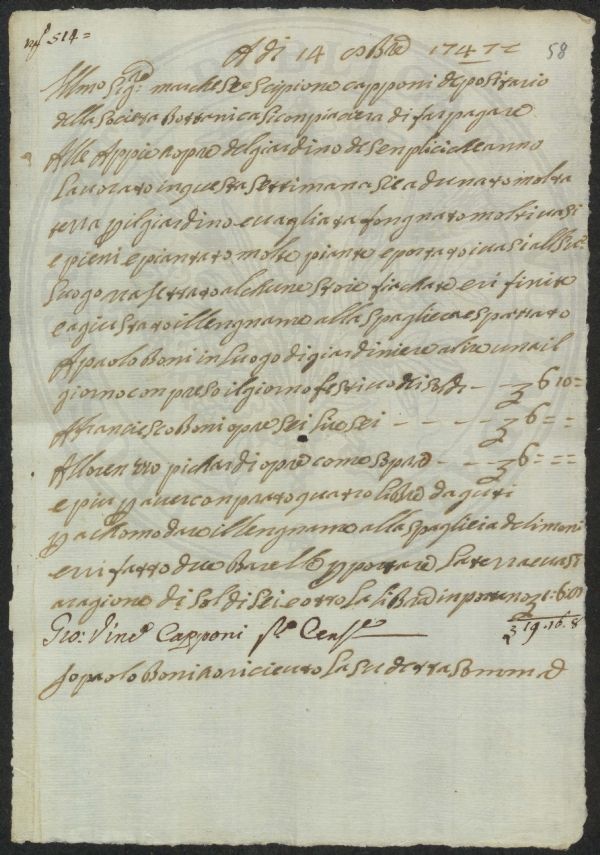 nº 514=
A di 14 8Bre 1747= 58
Illmo Sigre marchese Scipione Capponi depositario
della Societa Bottanica si conpiacera di far pagare
Alle Appie nopre del giardino de Senplici che anno
lavorato in questa settimana si e adunato molta
terra per il giardino e vagliata fongnato molti vasi
e pieni e piantato molte piante e portato i vasi al suo
luogo rasettato alchune stoie stachate e ri finite
e agiustato il lengname alla spagliera e spattato
A paolo Boni in luogo di giardiniere a lire una il
giorno conpreso il giorno festivo di soldi - - 6 10=
A franciesco Boni opre sei lire sei - - - - - 6= =
A lorenzo pichardi opre come sopra - - - 6= = =
e piu per aver conprato quatro libre d aguti
per achomodare il lengname alla spaglieia de limoni
e vi fatto due Barelle per portare la terra e vasi
a ragione di soldi sei e otto la libra inportano 1.6.8
Gio: Vinco Capponi Sto Cens 19.16.8
Io paolo Boni o riceuto la su detta somma